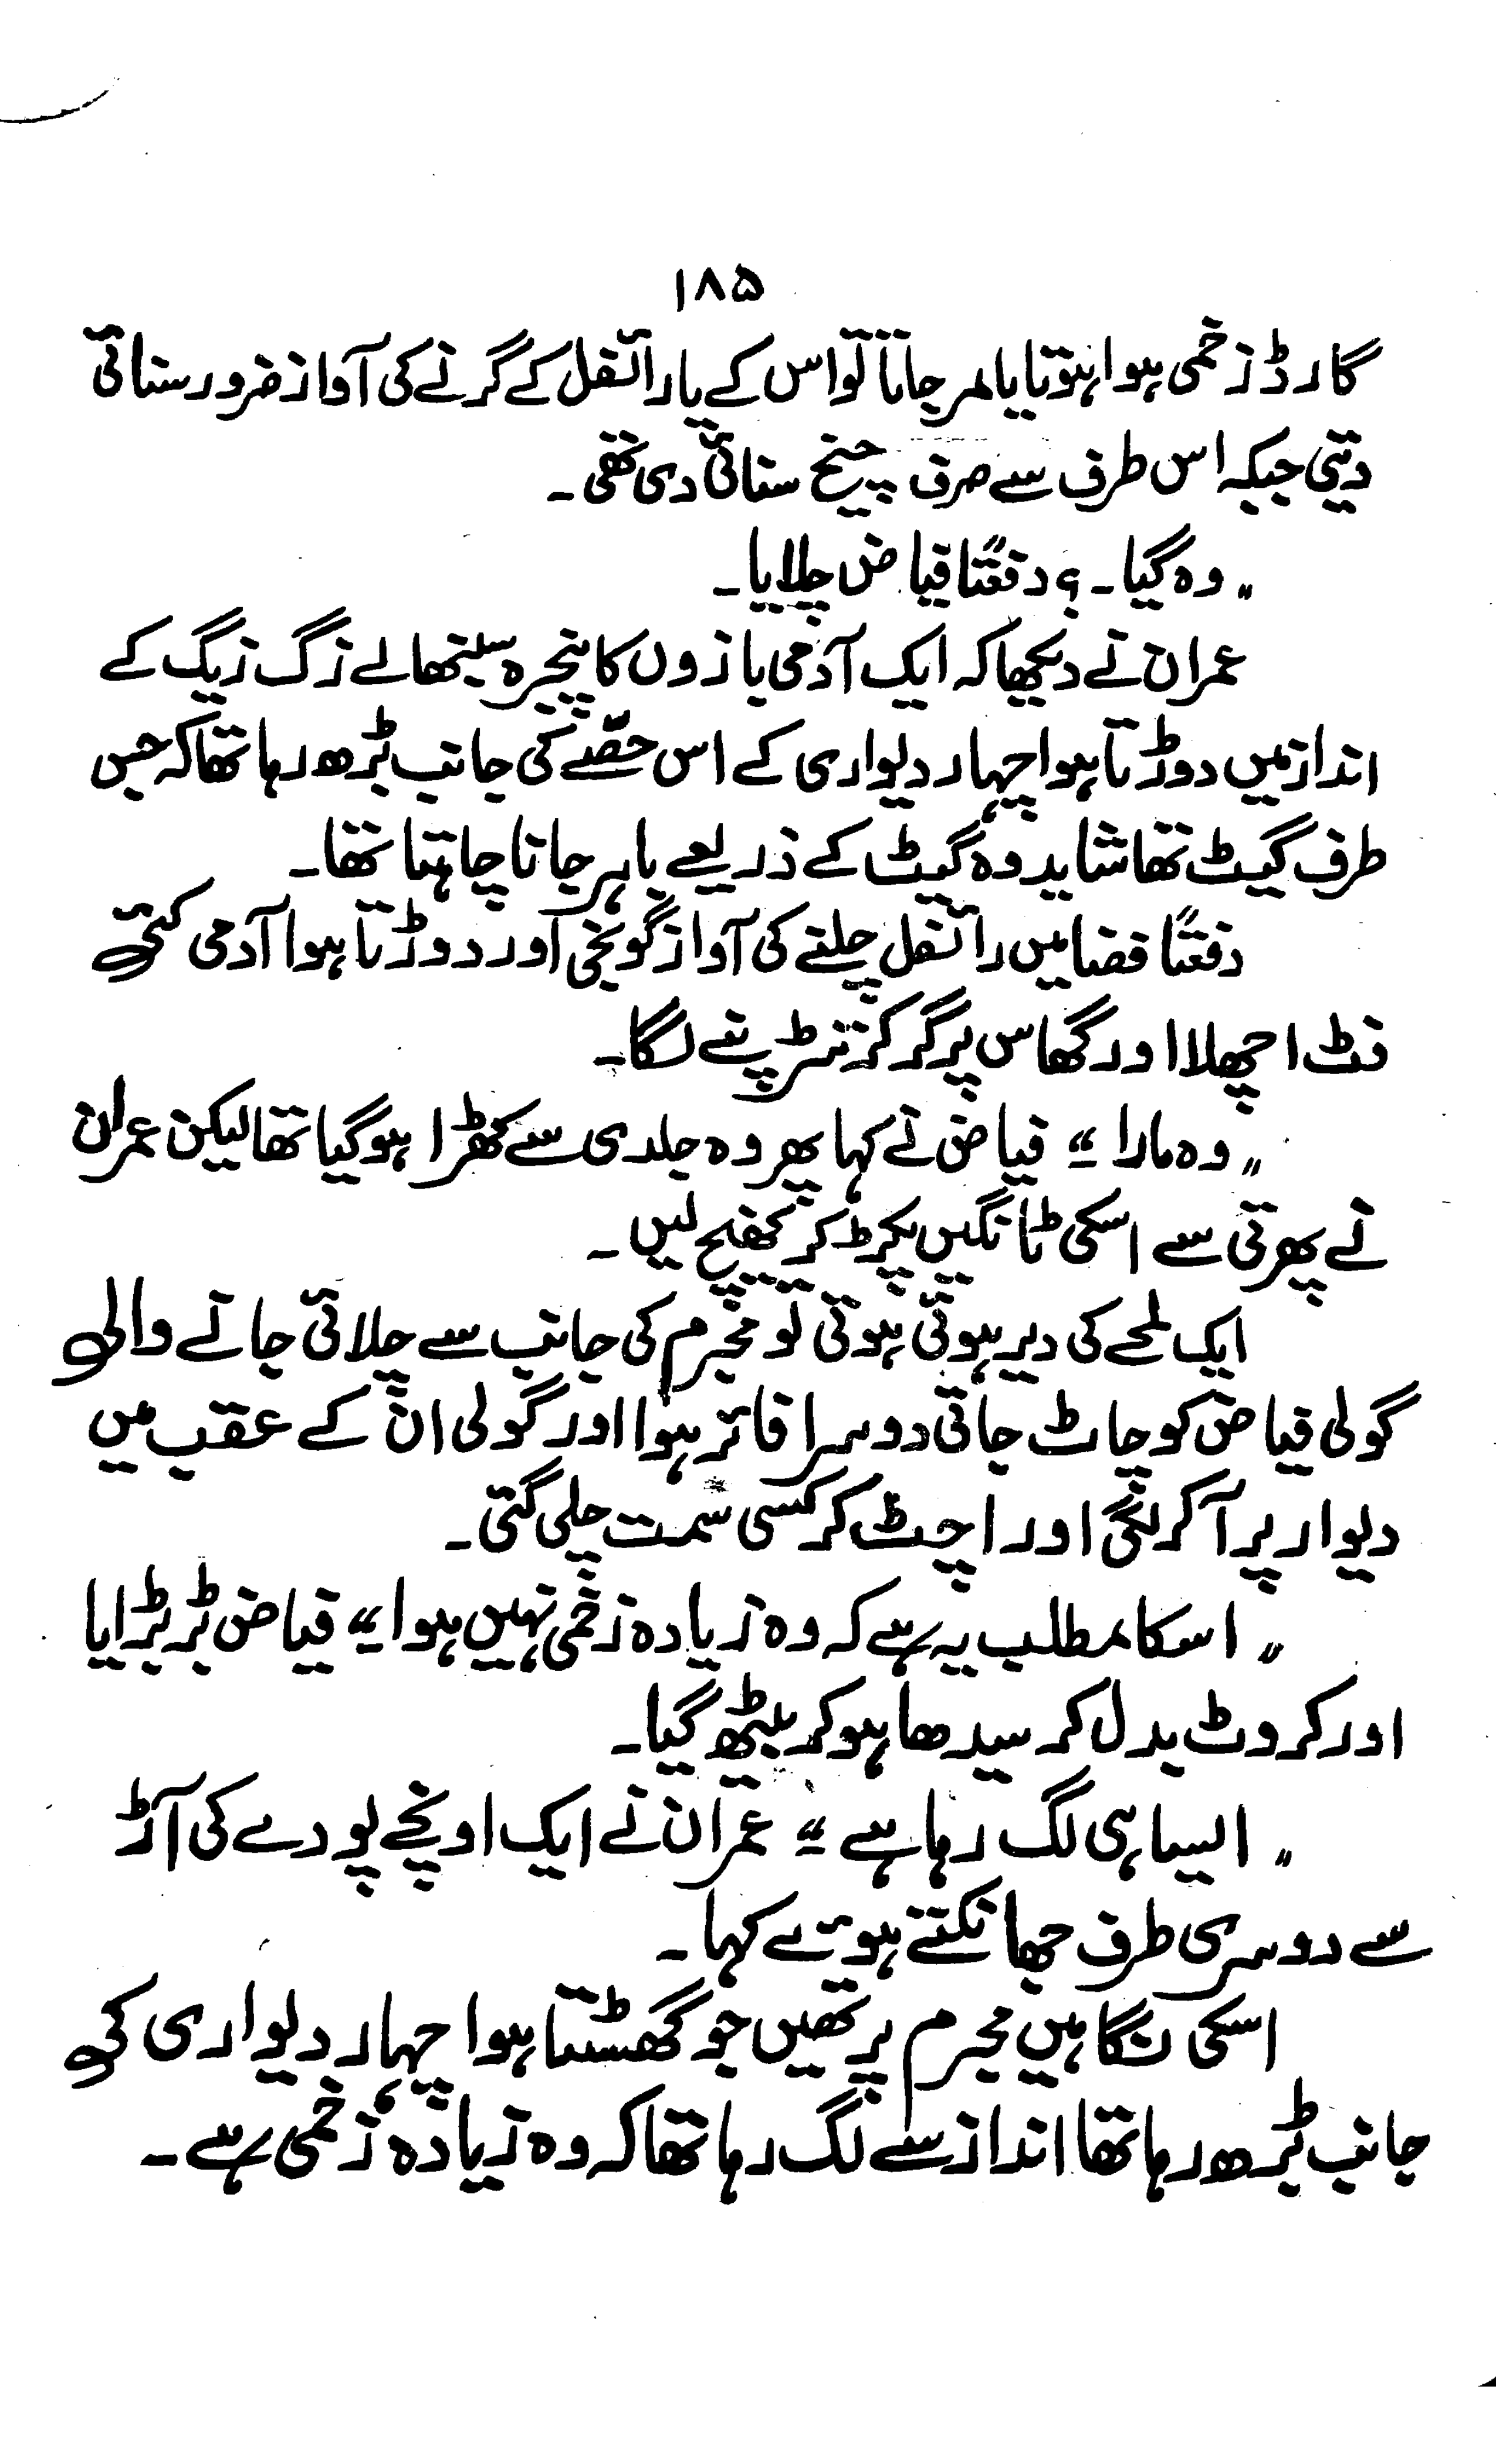 ۱۸۵
گارڈ زخمی ہوا ہوتا یا مر جاتا تو اس کے یا رائفل کے گرنے کی آواز ضرور سنائی
دیتی جبکہ اس طرف سے صرف چیخ سنائی دی تھی۔
"وہ گیا۔؟ دفعتاً فیاض چلایا۔
عمران نے دیکھا کہ ایک آدمی بازوں کا پنجرہ سنبھالے زگ زیگ کے
انداز میں دوڑتا ہوا چہار دیواری کے اس حصّے کی جانب بڑھ رہا تھا کہ جس
طرف گیٹ تھا شاید وہ گیٹ کے ذریعے باہر جانا چاہتا تھا۔
دفعتاً فضا میں رائفل چلنے کی آواز گونجی اور دوڑتا ہوا آدمی کئی
فٹ اچھلا اور گھاس پر گر کر تڑپنے لگا۔
"وہ مارا" فیاض نے کہا پھر وہ جلدی سے کھڑا ہو گیا تھا لیکن عمران
نے پھرتی سے اسکی ٹانگیں پکڑ کر کھینچ لیں۔
ایک لمحے کی دیر ہوئی ہوتی تو مجرم کی جانب سے چلائی جانے والی
گولی فیاض کو چاٹ جاتی دوسرا فائر ہوا اور گولی ان کے عقب میں
دیوار پر آکر لگی اور اچٹ کر کسی سمت چلی گئی۔
"اسکا مطلب یہ ہے کہ وہ زیادہ زخمی نہیں ہوا" فیاض بڑبڑایا
اور کروٹ بدل کر سیدھا ہو کر بیٹھ گیا۔
"ایسا ہی لگ رہا ہے" عمران نے ایک اونچے پودے کی آڑ
سے دوسری طرف جھانکتے ہوئے کہا۔
اسکی نگاہیں مجرم پر تھیں جو گھسٹتا ہوا چہار دیواری کی
جانب بڑھ رہا تھا انداز سے لگ رہا تھا کہ وہ زیادہ زخمی ہے۔